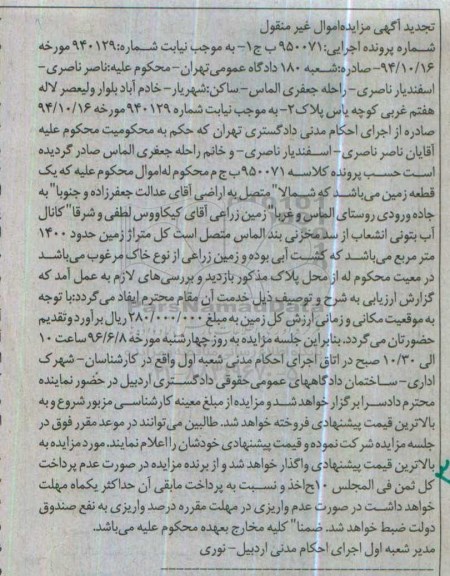 تجدید آگهی مزایده اموال غیر منقول
شماره پرونده اجرایی: ۹۵۰۰۷۱ ب ج ۱- به موجب نیابت شماره: ۹۴۰۱۲۹ مورخه
۹۴/۱۰/۱۶- صادره: شعبه ۱۸۰ دادگاه عمومی تهران- محکوم علیه: ناصر ناصری-
اسفندیار ناصری- راحله جعفری الماس- ساکن: شهریار- خادم آباد بلوار ولیعصر لاله
هفتم غربی کوچه یاس پلاک ۲- به موجب نیابت شماره ۹۴۰۱۲۹ مورخه ۹۴/۱۰/۱۶
صادره از اجرای احکام مدنی دادگستری تهران که حکم به محکومیت محکوم علیه
آقایان ناصر ناصری- اسفندیار ناصری- و خانم راحله جعفری الماس صادر گردیده
است حسب پرونده کلاسه ۹۵۰۰۷۱ ب ج م محکوم له اموال محکوم علیه که یک
قطعه زمین می باشد که شمالا" متصل به اراضی آقای عدالت جعفرزاده و جنوبا" به
جاده ورودی روستای الماس و غربا" زمین زراعی آقای کیکاووس لطفی و شرقا" کانال
آب بتونی انشعاب از سد مخزنی بند الماس متصل است کل متراژ زمین حدود ۱۴۰۰
متر مربع می باشد که کشت آبی بوده و زمین زراعی از نوع خاک مرغوب می باشد
در معیت محکوم له از محل پلاک مذکور بازدید و بررسی های لازم به عمل آمد که
گزارش ارزیابی به شرح و توصیف ذیل خدمت آن مقام محترم ایفاد می گردد: با توجه
به موقعیت مکانی و زمانی ارزش کل زمین به مبلغ ۲۸۰/۰۰۰/۰۰۰ ریال برآورد و تقدیم
حضورتان می گردد. بنابراین جلسه مزایده به روز چهارشنبه مورخه ۹۶/۶/۸ ساعت ۱۰
الی ۱۰/۳۰ صبح در اتاق اجرای احکام مدنی شعبه اول واقع در کارشناسان- شهرک
اداری- ساختمان دادگاههای عمومی حقوقی دادگستری اردبیل در حضور نماینده
محترم دادسرا برگزار خواهد شد و مزایده از مبلغ معینه کارشناسی مزبور شروع و به
بالاترین قیمت پیشنهادی فروخته خواهد شد. طالبین می توانند در موعد مقرر فوق در
جلسه مزایده شرکت نموده و قیمت پیشنهادی خودشان را اعلام نمایند. مورد مزایده به
بالاترین قیمت پیشنهادی واگذار خواهد شد و از برنده مزایده در صورت عدم پرداخت
کل ثمن فی المجلس ۱۰٪ اخذ و نسبت به پرداخت مابقی آن حداکثر یکماه مهلت
خواهد داشت در صورت عدم واریزی در مهلت مقرره درصد واریزی به نفع صندوق
دولت ضبط خواهد شد. ضمنا" کلیه مخارج بعهده محکوم علیه می باشد.
مدیر شعبه اول اجرای احکام مدنی اردبیل- نوری